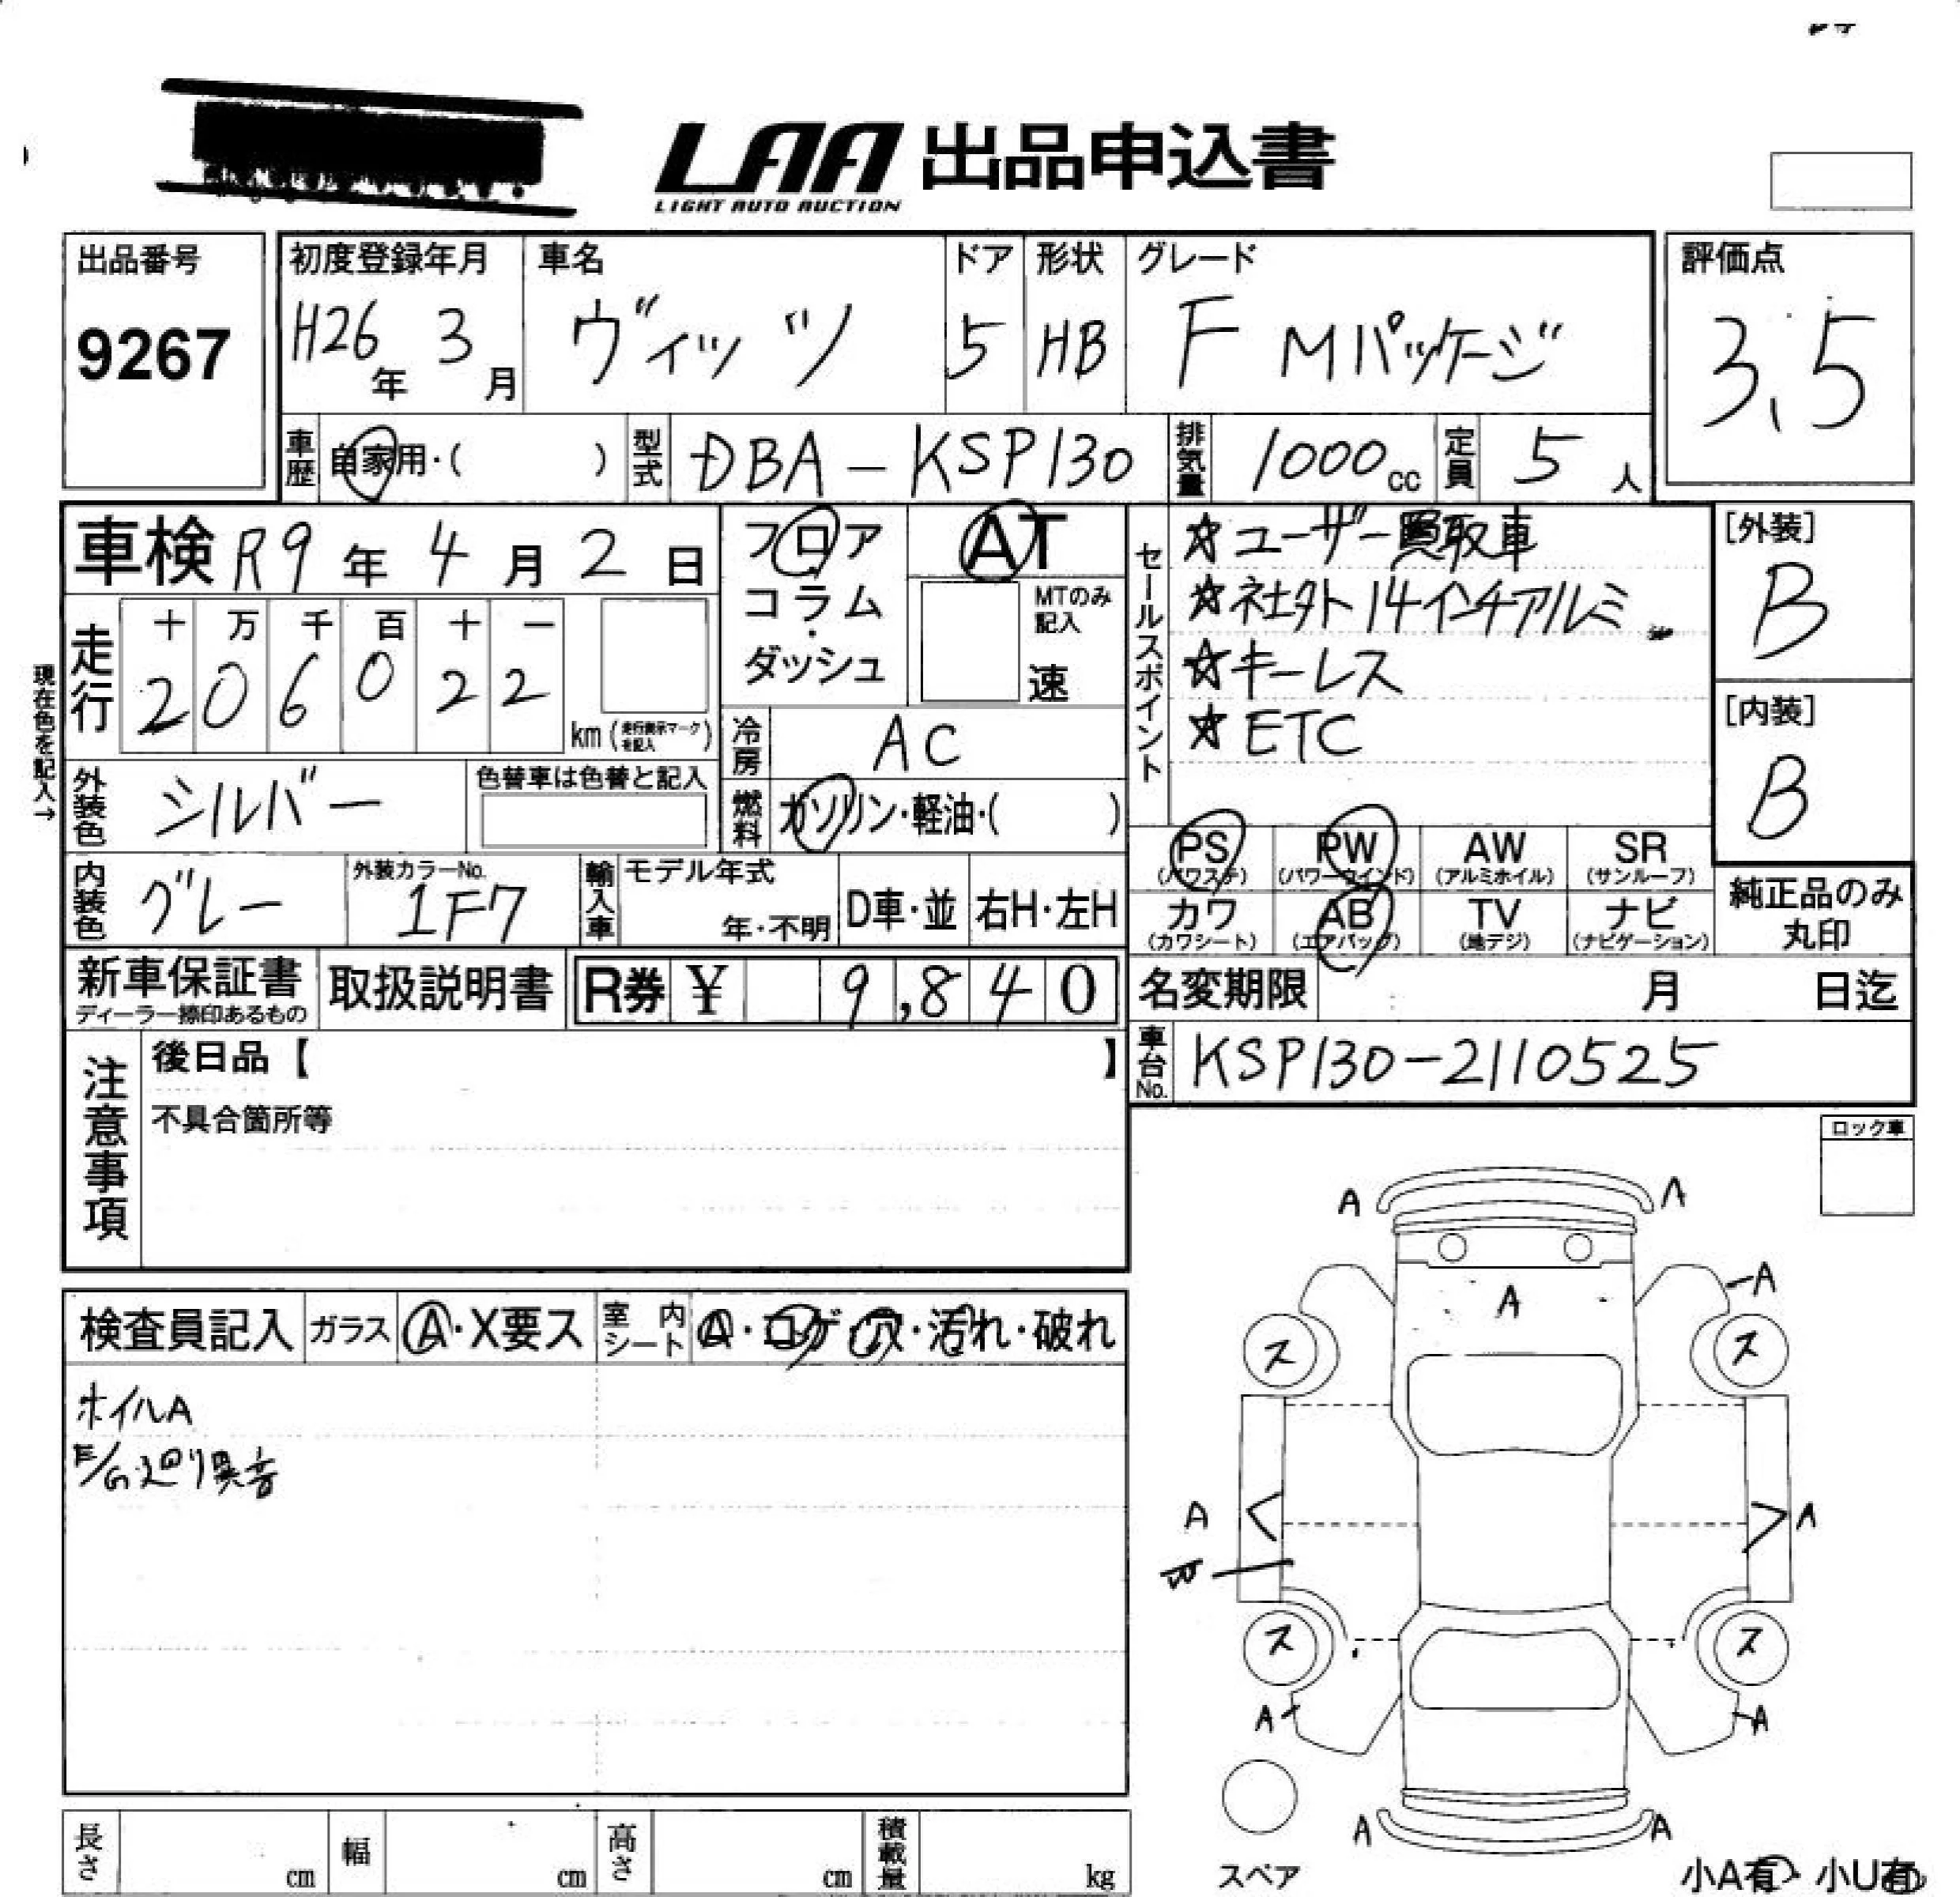 LAA 出品申込書
LIGHT AUTO AUCTION
出品番号
9267
初度登録年月
H26年 3月
車名
ヴィッツ
ドア
5
形状
HB
グレード
F Mパッケージ
評価点
3.5
車歴
自家用・( )
型式
DBA-KSP130
排気量
1000cc
定員
5人
車検 R9年 4月 2日
走行
十 万 千 百 十 一
2 0 6 0 2 2
km (走行表示マークを記入)
現在色を記入→
外装色
シルバー
色替車は色替と記入
内装色
グレー
外装カラーNo.
1F7
フロア
コラム
・
ダッシュ
AT
MTのみ記入
速
冷房
AC
燃料
ガソリン・軽油・( )
輸入車
モデル年式
年・不明
D車・並
右H・左H
セールスポイント
☆ユーザー買取車
☆社外14インチアルミ
☆キーレス
☆ETC
[外装]
B
[内装]
B
PS
(パワステ)
PW
(パワーウインド)
AW
(アルミホイル)
SR
(サンルーフ)
カワ
(カワシート)
AB
(エアバッグ)
TV
(地デジ)
ナビ
(ナビゲーション)
純正品のみ
丸印
新車保証書
ディーラー捺印あるもの
取扱説明書
R券 ¥ 9,840
名変期限 月 日迄
車台No.
KSP130-2110525
注意事項
後日品【 】
不具合箇所等
ロック車
検査員記入
ガラス
A・X要ス
室内シート
A・コゲ・穴・汚れ・破れ
ホイルA
E/G廻り異音
A A
A
A
ス ス
A A
ス ス
A A
A A
スペア
小A有・小U有
長さ cm
幅 cm
高さ cm
積載量 kg